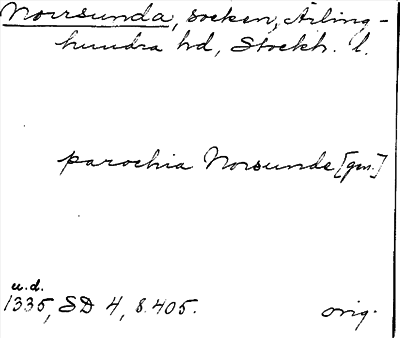 Norrsunda, socken, Ärling-
hundra hd, Stockh. l.
parochia Norsunde [gen.]
u.d.
1335, SD 4, s. 405.
orig.